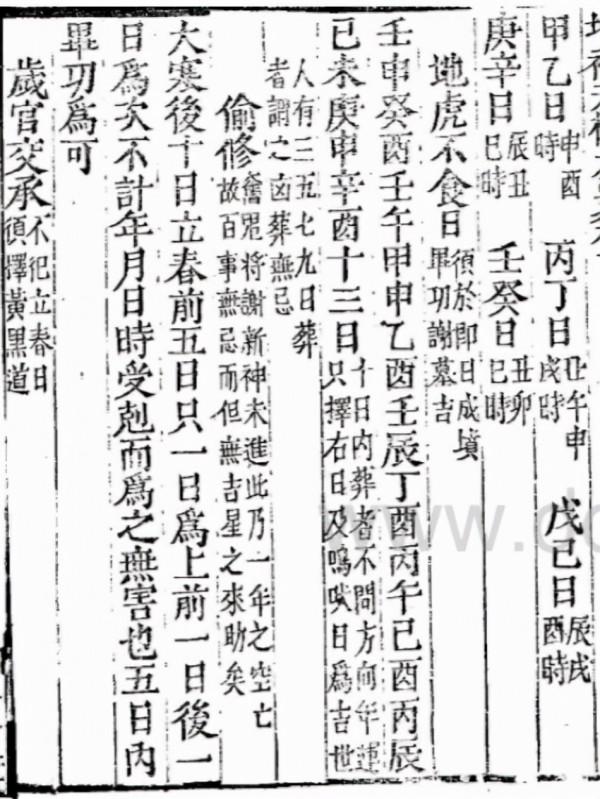 甲乙日 申酉時 丙丁日 丑午申戌時 戊己日 辰戌酉時
庚辛日 辰丑巳時 壬癸日 丑卯巳時
地虎不食日 須於即日成墳畢功謝墓吉
壬申癸酉壬午甲申乙酉壬辰丁酉丙午己酉丙辰
已未庚申辛酉十三日 十日内葬者不問方向年運只擇右日及鳴吠日爲吉世
人有三五七九日葬者謂之凶葬無忌
偷修 舊將謝新神未進此乃一年之空亡故百事無忌而但無吉星之來助矣
大寒後十日立春前五日只一日爲上前一日後一
日爲次不計年月日時受剋而爲之無害也五日内
畢功爲可
歲官交承 不犯立春日須擇黃黑道
www.d